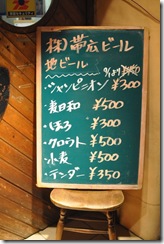 (株)帯広ビール
地ビール
・シャンピニオン ¥300
・麦日和 ¥500
・ほろ ¥300
・クロウト ¥500
・小麦 ¥500
・テンダー ¥350